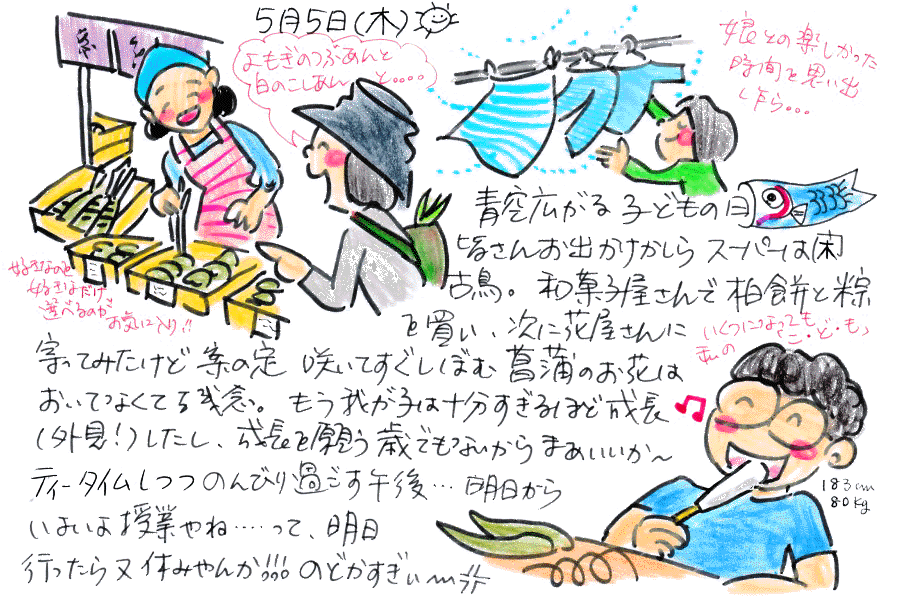 5月5日(木)
よもぎのつぶあんと
白のこしあんと....
娘との楽しかった
時間を思い出
し乍ら...
青空広がる子どもの日
皆さんお出かけかしら スーパーは(木)
古鳥。和菓子屋さんで柏餅と粽
を買い、次に花屋さんに
寄ってみたけど案の定 咲いてすぐしぼむ菖蒲のお花は
おいてなくて残念。もう我が子は十分すぎるほど成長
(外見!)したし、成長を願う歳でもないからまあいいか〜
ティータイムしつつのんびり過ごす午後... 明日から
いよいよ授業やね....って、明日
行ったら又休みやんか!!! のどかすぎぃ〜
好きなのを
好きなだけ
選べるのが
お気に入り!!
いくつになっても
私のこ・ど・も
183cm
80kg